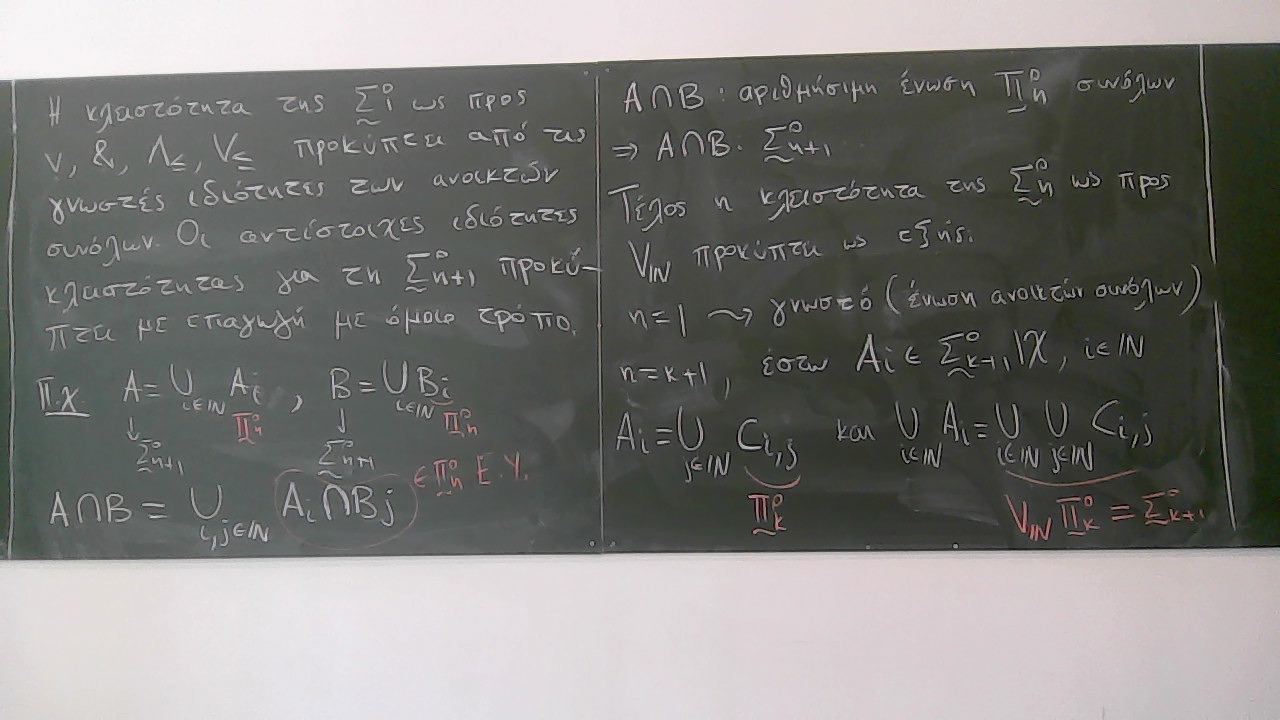 Η κλειστότητα της Σ̰⁰₁ ως προς
∨, &, Λ≤, V≤ προκύπτει από τις
γνωστές ιδιότητες των ανοικτών
συνόλων. Οι αντίστοιχες ιδιότητες
κλειστότητας για τη Σ̰⁰ₙ₊₁ προκύ-
πτει με επαγωγή με όμοιο τρόπο.
Π.χ A = ∪_{i∈ℕ} A_i , B = ∪_{i∈ℕ} B_i
↓ Π̰⁰ₙ ↓ Π̰⁰ₙ
Σ̰⁰ₙ₊₁ Σ̰⁰ₙ₊₁
A∩B = ∪_{i,j∈ℕ} A_i ∩ B_j ∈ Π̰⁰ₙ Ε.Υ.
A∩B : αριθμήσιμη ένωση Π̰⁰ₙ συνόλων
⇒ A∩B : Σ̰⁰ₙ₊₁
Τέλος η κλειστότητα της Σ̰⁰ₙ ως προς
V_ℕ προκύπτει ως εξής.
n=1 ⤳ γνωστό (ένωση ανοικτών συνόλων)
n=k+1, έστω A_i ∈ Σ̰⁰ₖ₊₁|X, i∈ℕ
A_i = ∪_{j∈ℕ} C_{i,j} και ∪_{i∈ℕ} A_i = ∪_{i∈ℕ} ∪_{j∈ℕ} C_{i,j}
Π̰⁰ₖ V_ℕ Π̰⁰ₖ = Σ̰⁰ₖ₊₁